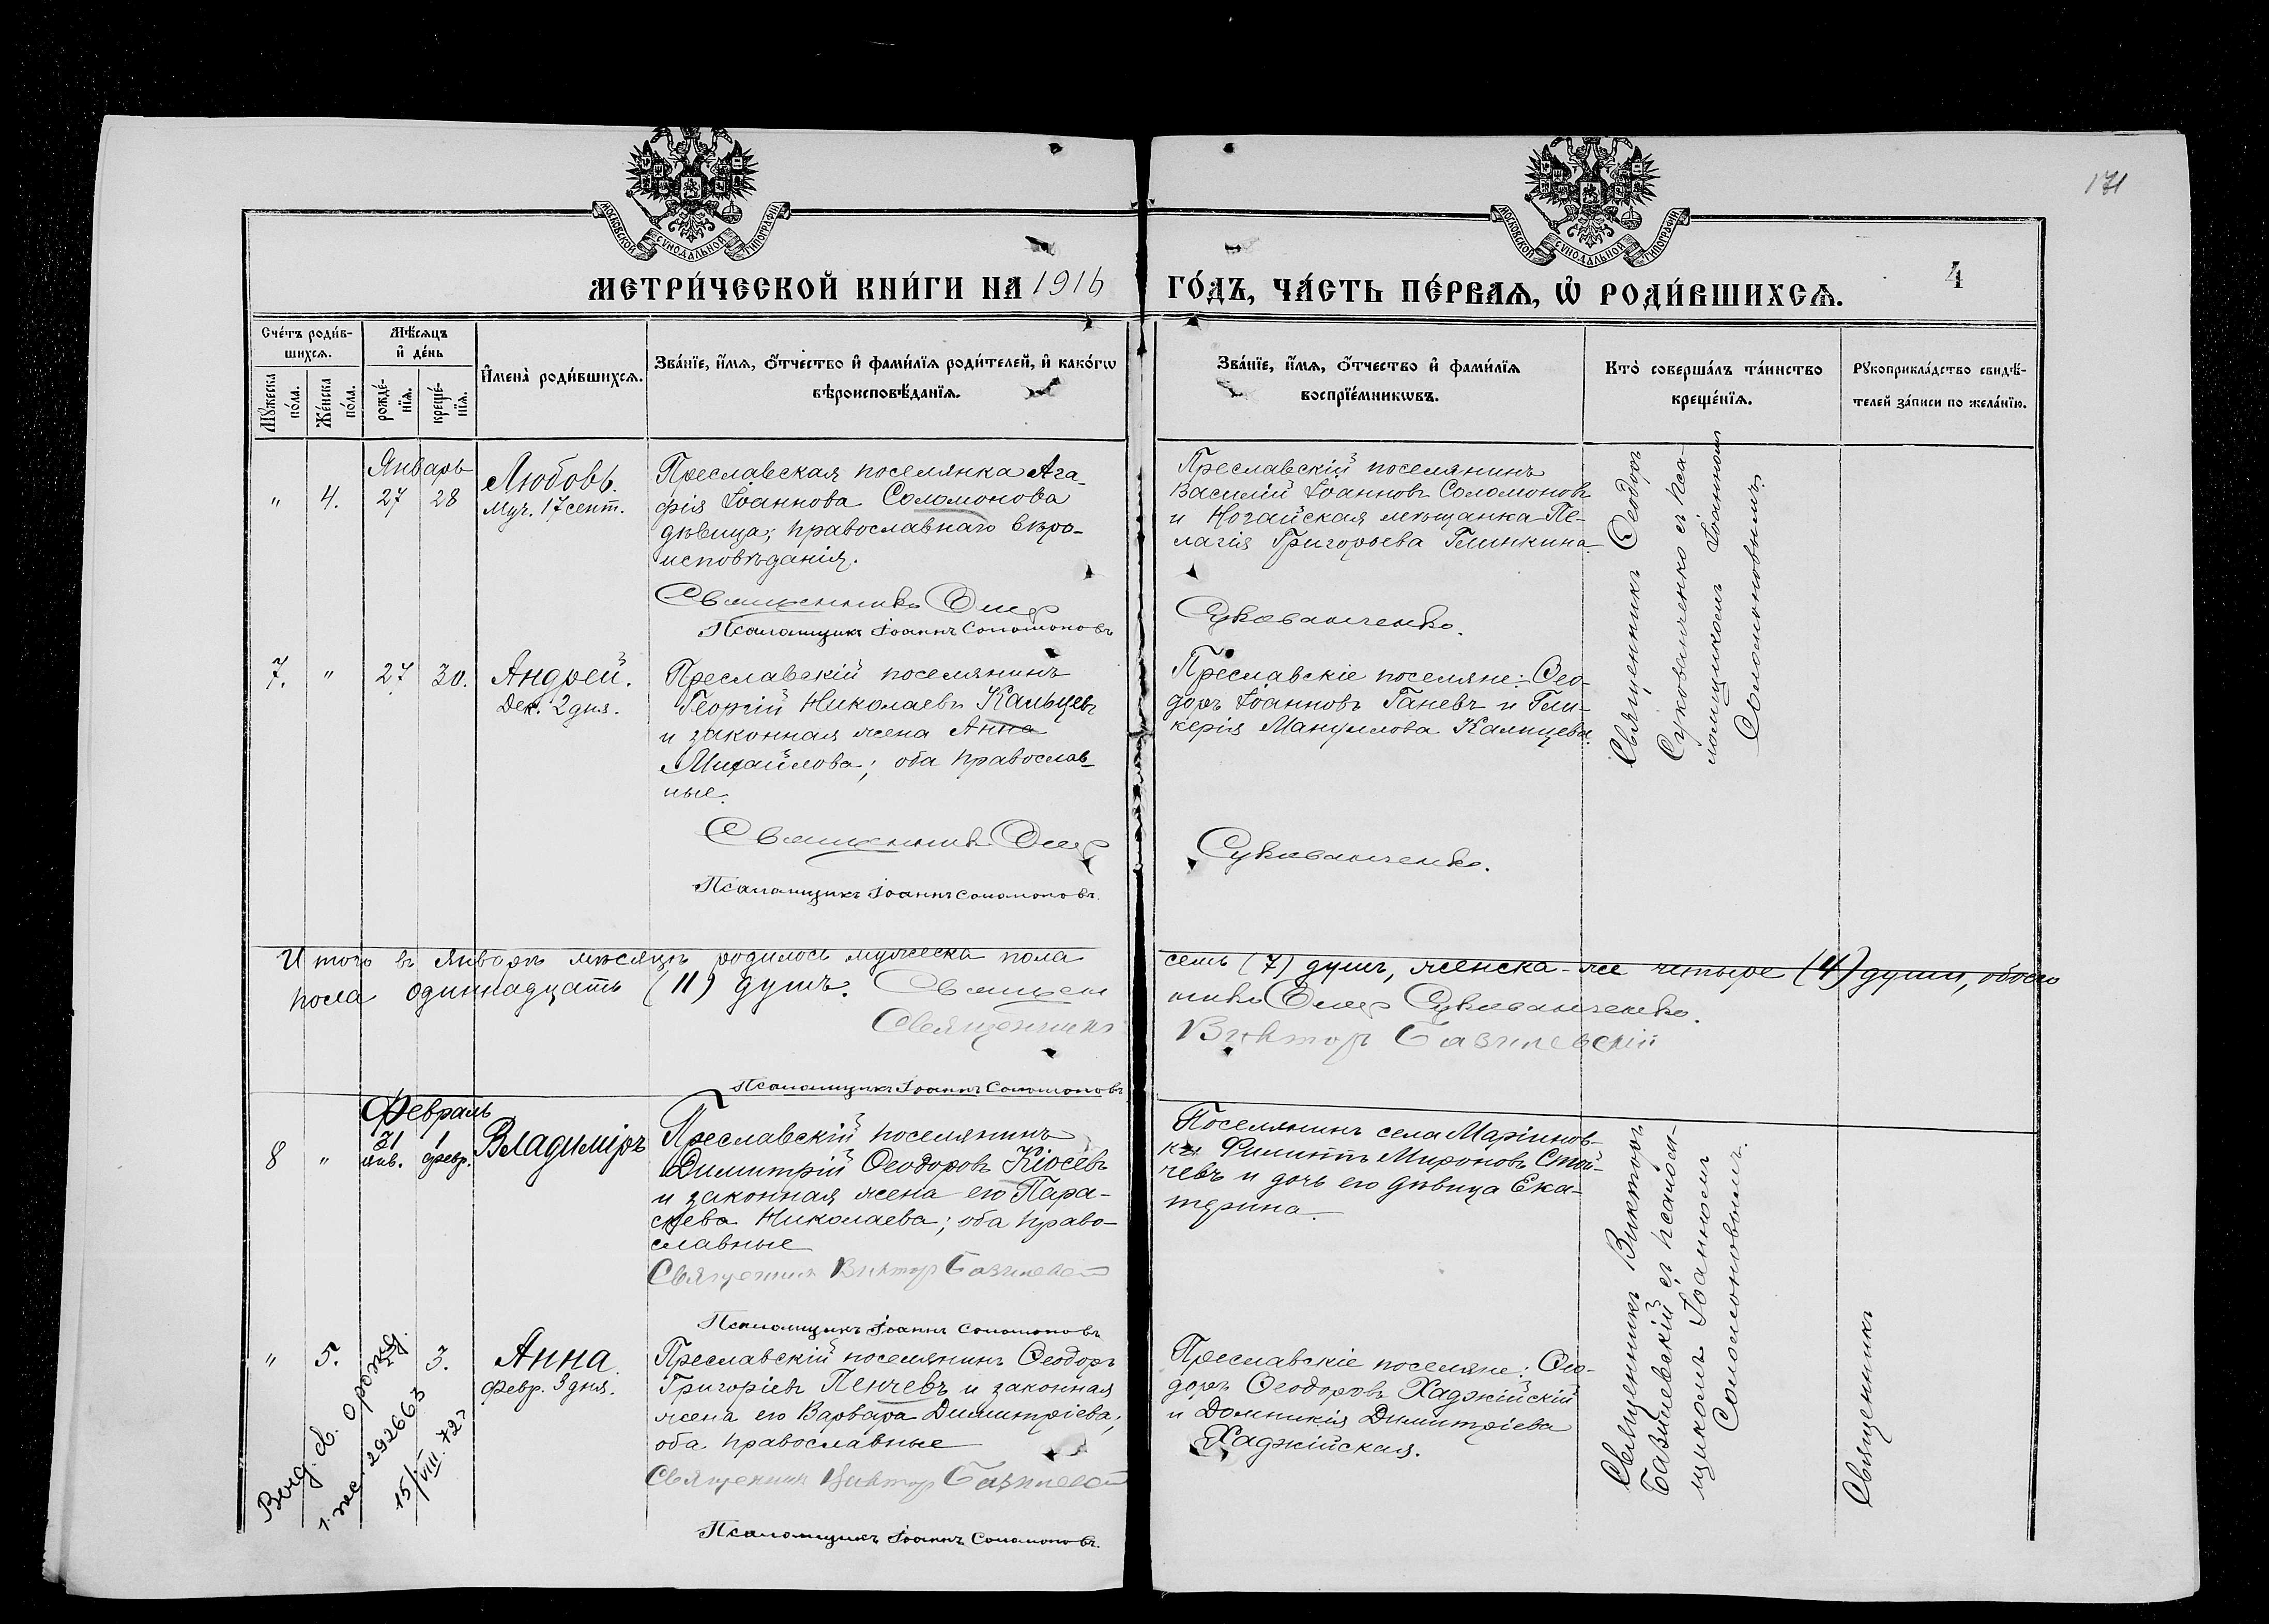 171
МОСКОВСКОЙ СУНОДАЛЬНОЙ ТИПОГРАФІИ
МОСКОВСКОЙ СУНОДАЛЬНОЙ ТИПОГРАФІИ
МЕТРИ́ЧЕСКОЙ КНИ́ГИ НА 1916
ГО́ДЪ, ЧА́СТЬ ПЕ́РВАѦ, Ѡ РОДИ́ВШИХСѦ.
4
Сче́тъ роди́в-
шихсѧ.
Мꙋ́жеска
по́ла.
Же́нска
по́ла.
Мѣ́сѧцъ
и҆ де́нь
рожде́-
нїѧ.
креще́-
нїѧ.
И҆мена̀ роди́вшихсѧ.
Зва́нїе, и҆́мѧ, ѻ҆́тчество и҆ фами́лїѧ роди́телей, и҆ како́гѡ
вѣроисповѣ́данїѧ.
Зва́нїе, и҆́мѧ, ѻ҆́тчество и҆ фами́лїѧ
воспрїе́мникѡвъ.
Кто̀ соверша́лъ та́инство
креще́нїѧ.
Рꙋкоприкла́дство свидѣ́-
телей за́писи по жела́нїю.
Январь
" 4. 27 28
Любовь.
Муч. 17 сент.
Преславская поселянка Ага-
фія Іоаннова Соломонова
дѣвица; православнаго вѣро-
исповѣданія.
Священникъ Ѳеод
Псаломщикъ Іоаннъ Соломоновъ
Преславскій поселянинъ
Василій Іоанновъ Соломоновъ
и Ногайская мѣщанка Пе-
лагія Григорьева Глинкина
Сукованченко.
Священникъ Ѳеодоръ
Сукованченко съ пса-
ломщикомъ Іоанномъ
Соломоновымъ.
7. " 27 30.
Андрей.
Дек. 2 дня.
Преславскій поселянинъ
Георгій Николаевъ Кальчевъ
и законная жена Анна
Михайлова; оба православ-
ные.
Священникъ Ѳеод
Псаломщикъ Іоаннъ Соломоновъ.
Преславскіе поселяне: Ѳео-
доръ Іоанновъ Ганевъ и Гли-
керія Мануилова Кальчева.
Сукованченко.
Итого въ Январѣ мѣсяцѣ родилось мужеска пола
семь (7) душъ, женска-же четыре (4) души, обоего
пола одиннадцать (11) душъ. Священ
никъ Ѳеод Сукованченко.
Священникъ
Виктор Базилевскій
Псаломщикъ Іоаннъ Соломоновъ
Февраль
8 " 31 янв. 1 февр.
Владиміръ
Преславскій поселянинъ
Димитрій Ѳеодоровъ Кіосевъ
и законная жена его Пара-
скева Николаева; оба право-
славные
Священник Виктор Базилевск
Псаломщикъ Іоаннъ Соломоновъ
Поселянинъ села Маріинов-
ки Филиппъ Мироновъ Стой-
чевъ и дочь его дѣвица Ека-
терина.
Священникъ Викторъ
Базилевскій съ псалом-
щикомъ Іоанномъ
Соломоновымъ.
" 5. 3.
Анна
Февр. 3 дня.
Преславскій поселянинъ Ѳеодоръ
Григоріевъ Пенчевъ и законная
жена его Варвара Димитріева;
оба православные
Священник Виктор Базилевск
Псаломщикъ Іоаннъ Соломоновъ.
Преславскіе поселяне: Ѳео-
доръ Ѳеодоровъ Хаджійскій
и Домникія Димитріева
Хаджійская.
Священникъ
Выд. св. о рожд.
1. жс 292663
15/VIII. 72г